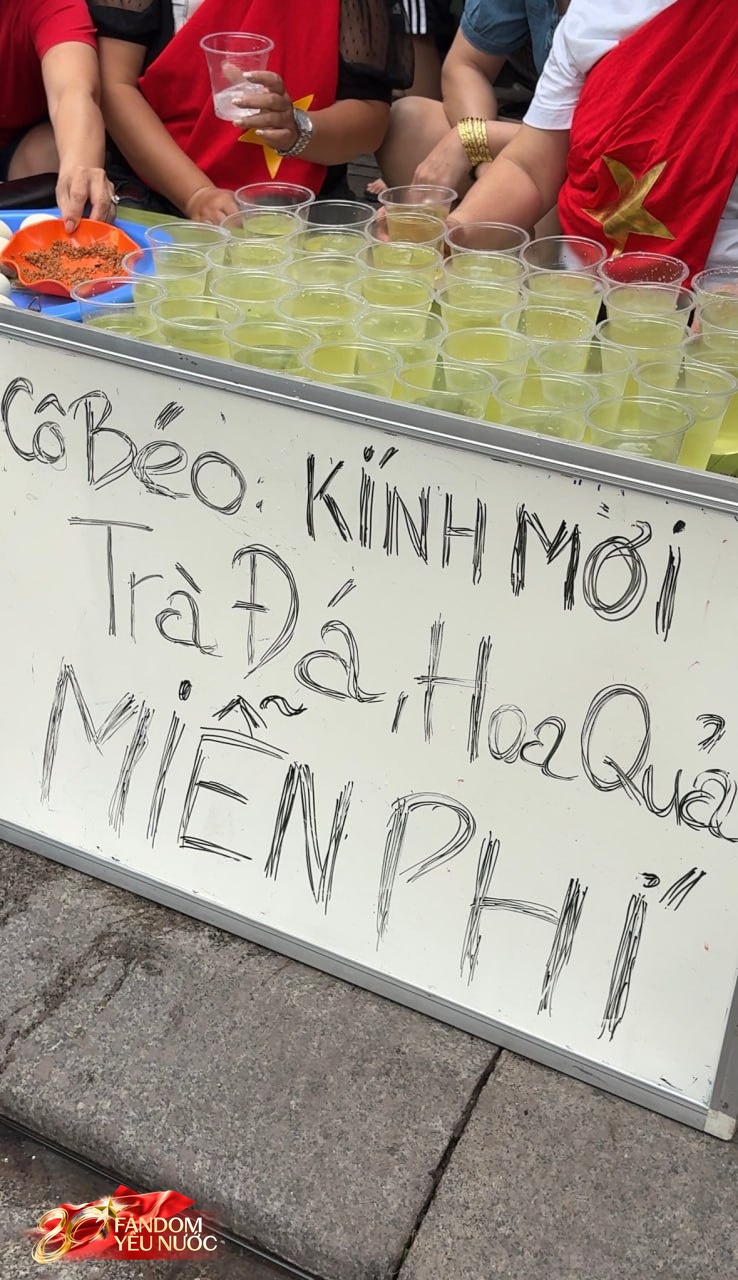 Cô Béo: KÍNH MỜI
Trà Đá, Hoa Quả
MIỄN PHÍ
80 FANDOM
YÊU NƯỚC